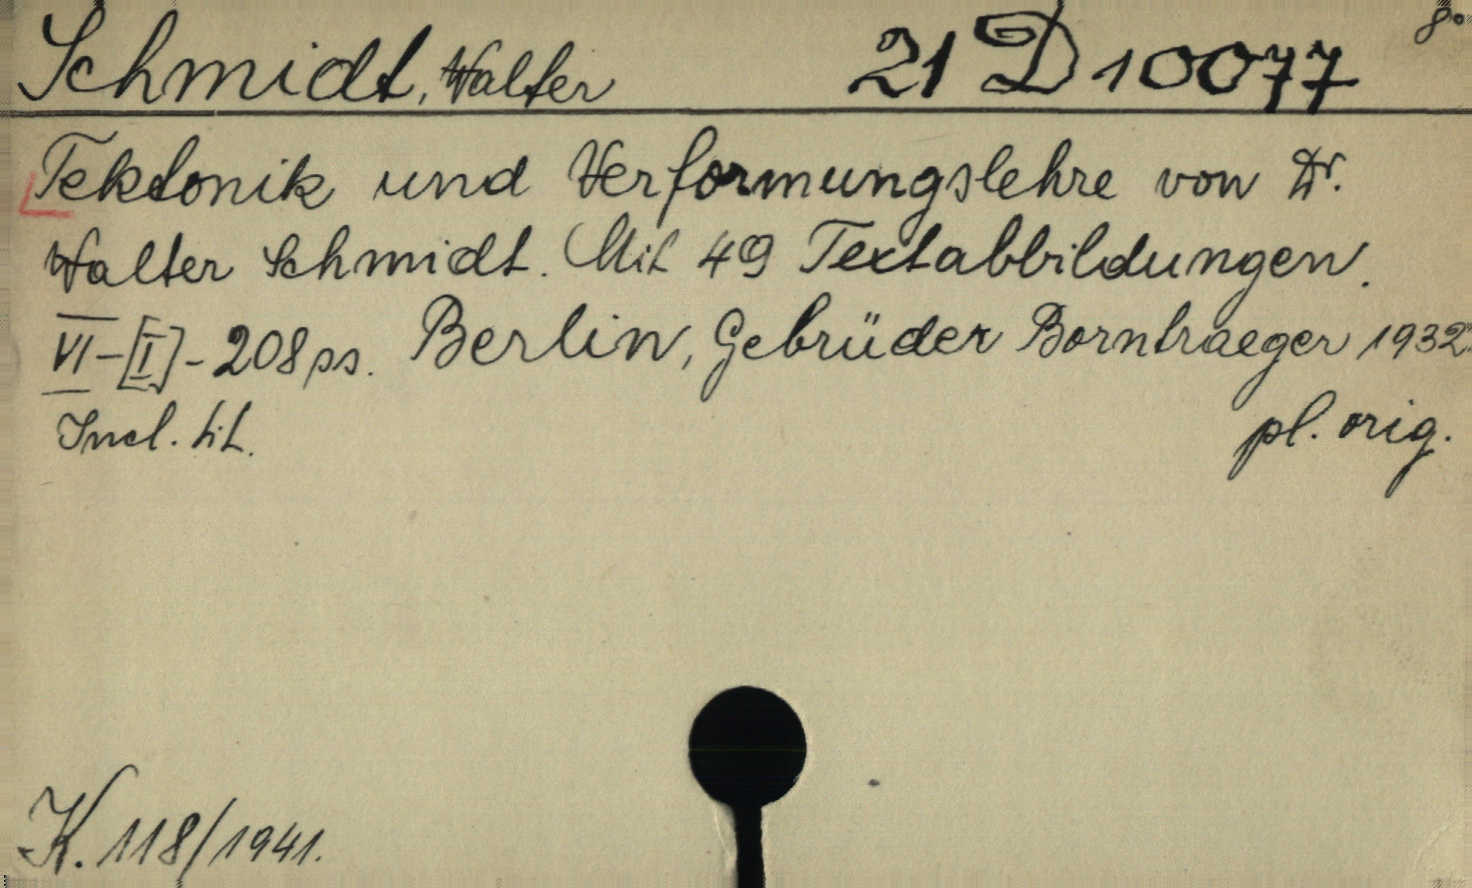 Schmidt, Walter 21 D 10077 8°
Tektonik und Verformungslehre von Dr.
Walter Schmidt. Mit 49 Textabbildungen.
VI-[I]-208 ps. Berlin, Gebrüder Borntraeger 1932.
Incl. tit. pl. orig.
K. 118/1941.